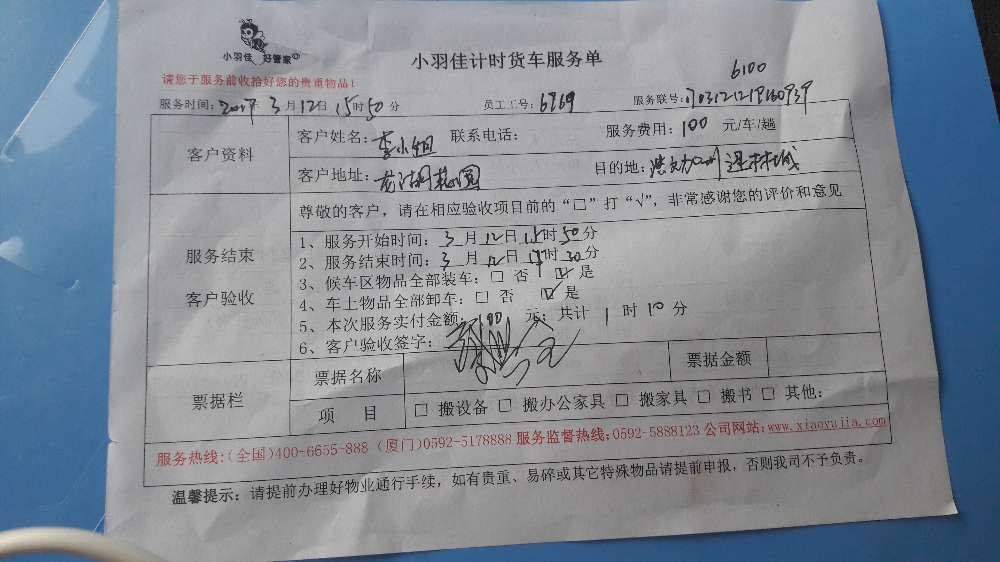 小羽佳 好管家
小羽佳计时货车服务单
请您于服务前收拾好您的贵重物品！
6100
服务时间：2017年 3月12日 15时50分 员工工号：6869 服务联号：
客户资料
客户姓名：李小姐 联系电话： 服务费用：100 元/车/趟
客户地址：龙湖花园 目的地：
尊敬的客户，请在相应验收项目前的“□”打“√”，非常感谢您的评价和意见
服务结束
客户验收
1、服务开始时间：3月12日15时50分
2、服务结束时间：3月12日17时30分
3、候车区物品全部装车：□ 否 ☑ 是
4、车上物品全部卸车：□ 否 ☑ 是
5、本次服务实付金额：100 元；共计 1 时10分
6、客户验收签字：
票据栏
票据名称 票据金额
项 目 □ 搬设备 □ 搬办公家具 □ 搬家具 □ 搬书 □ 其他：
服务热线：(全国)400-6655-888 (厦门)0592-5178888 服务监督热线：0592-5888123 公司网站：www.xiaoyujia.com
温馨提示：请提前办理好物业通行手续，如有贵重、易碎或其它特殊物品请提前申报，否则我司不予负责。